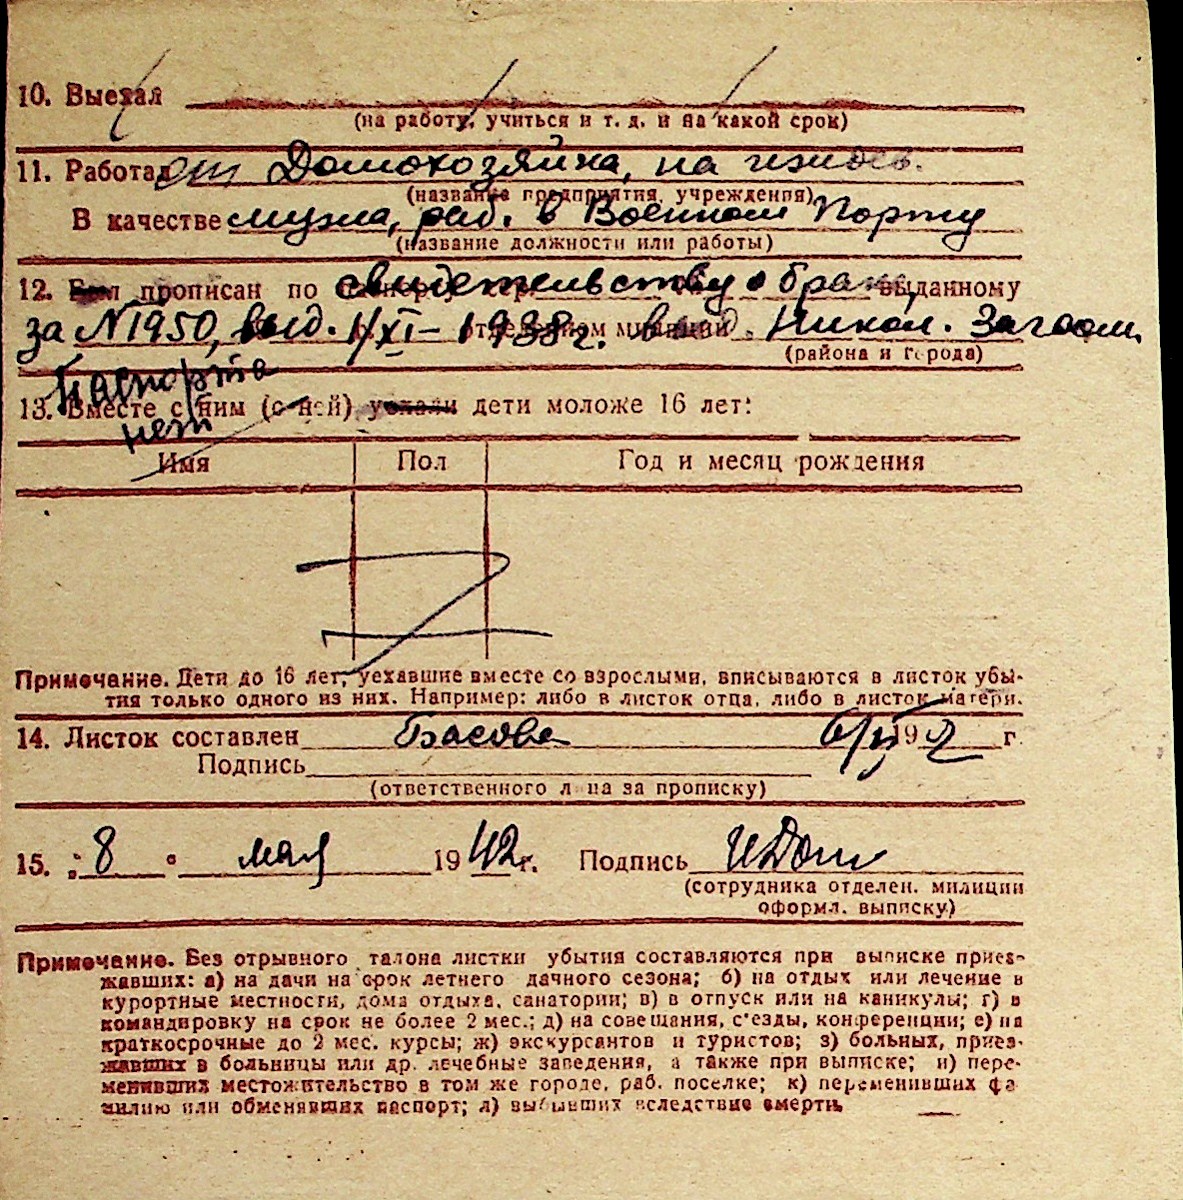 10. Выехал
(на работу, учиться и т. д. и на какой срок)
11. Работал Домохозяйка, на иждев.
(название предприятия, учреждения)
В качестве мужа, раб. в Военном Порту
(название должности или работы)
12. Был прописан по свидетельству о браке, выданному
за N 1950, выд. 1/XI-1938 г. отделением милиции Никол. Загсом
(района и города)
Паспорта
13. Вместе с ним (с ней) уехали дети моложе 16 лет:
нет
Имя Пол Год и месяц рождения
Примечание. Дети до 16 лет, уехавшие вместе со взрослыми, вписываются в листок убы-
тия только одного из них. Например: либо в листок отца, либо в листок матери.
14. Листок составлен Басова 194 г.
Подпись
(ответственного лица за прописку)
15. 8 мая 1942 г. Подпись
(сотрудника отделен. милиции
оформл. выписку)
Примечание. Без отрывного талона листки убытия составляются при выписке приез-
жавших: а) на дачи на срок летнего дачного сезона; б) на отдых или лечение в
курортные местности, дома отдыха, санатории; в) в отпуск или на каникулы; г) в
командировку на срок не более 2 мес.; д) на совещания, с'езды, конференции; е) на
краткосрочные до 2 мес. курсы; ж) экскурсантов и туристов; з) больных, приез-
жавших в больницы или др. лечебные заведения, а также при выписке; и) пере-
менивших местожительство в том же городе, раб. поселке; к) переменивших фа-
милию или обменявших паспорт; л) выбывших вследствие смерти.